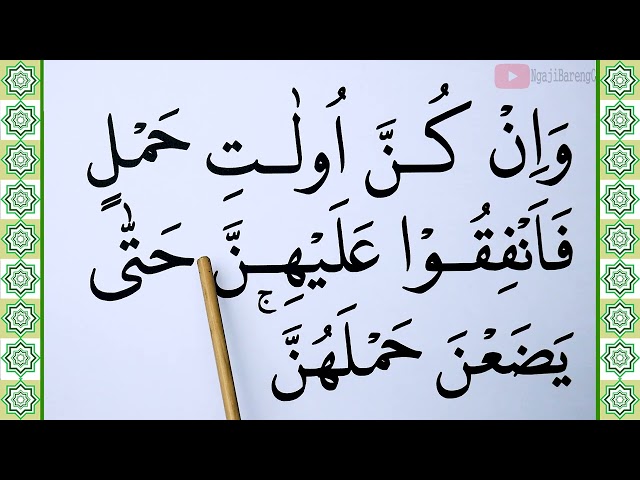 NgajiBarengG
وَاِنْ كُنَّ اُولٰتِ حَمْلٍ
فَاَنْفِقُوْا عَلَيْهِنَّ حَتّٰى
يَضَعْنَ حَمْلَهُنَّ ۚ